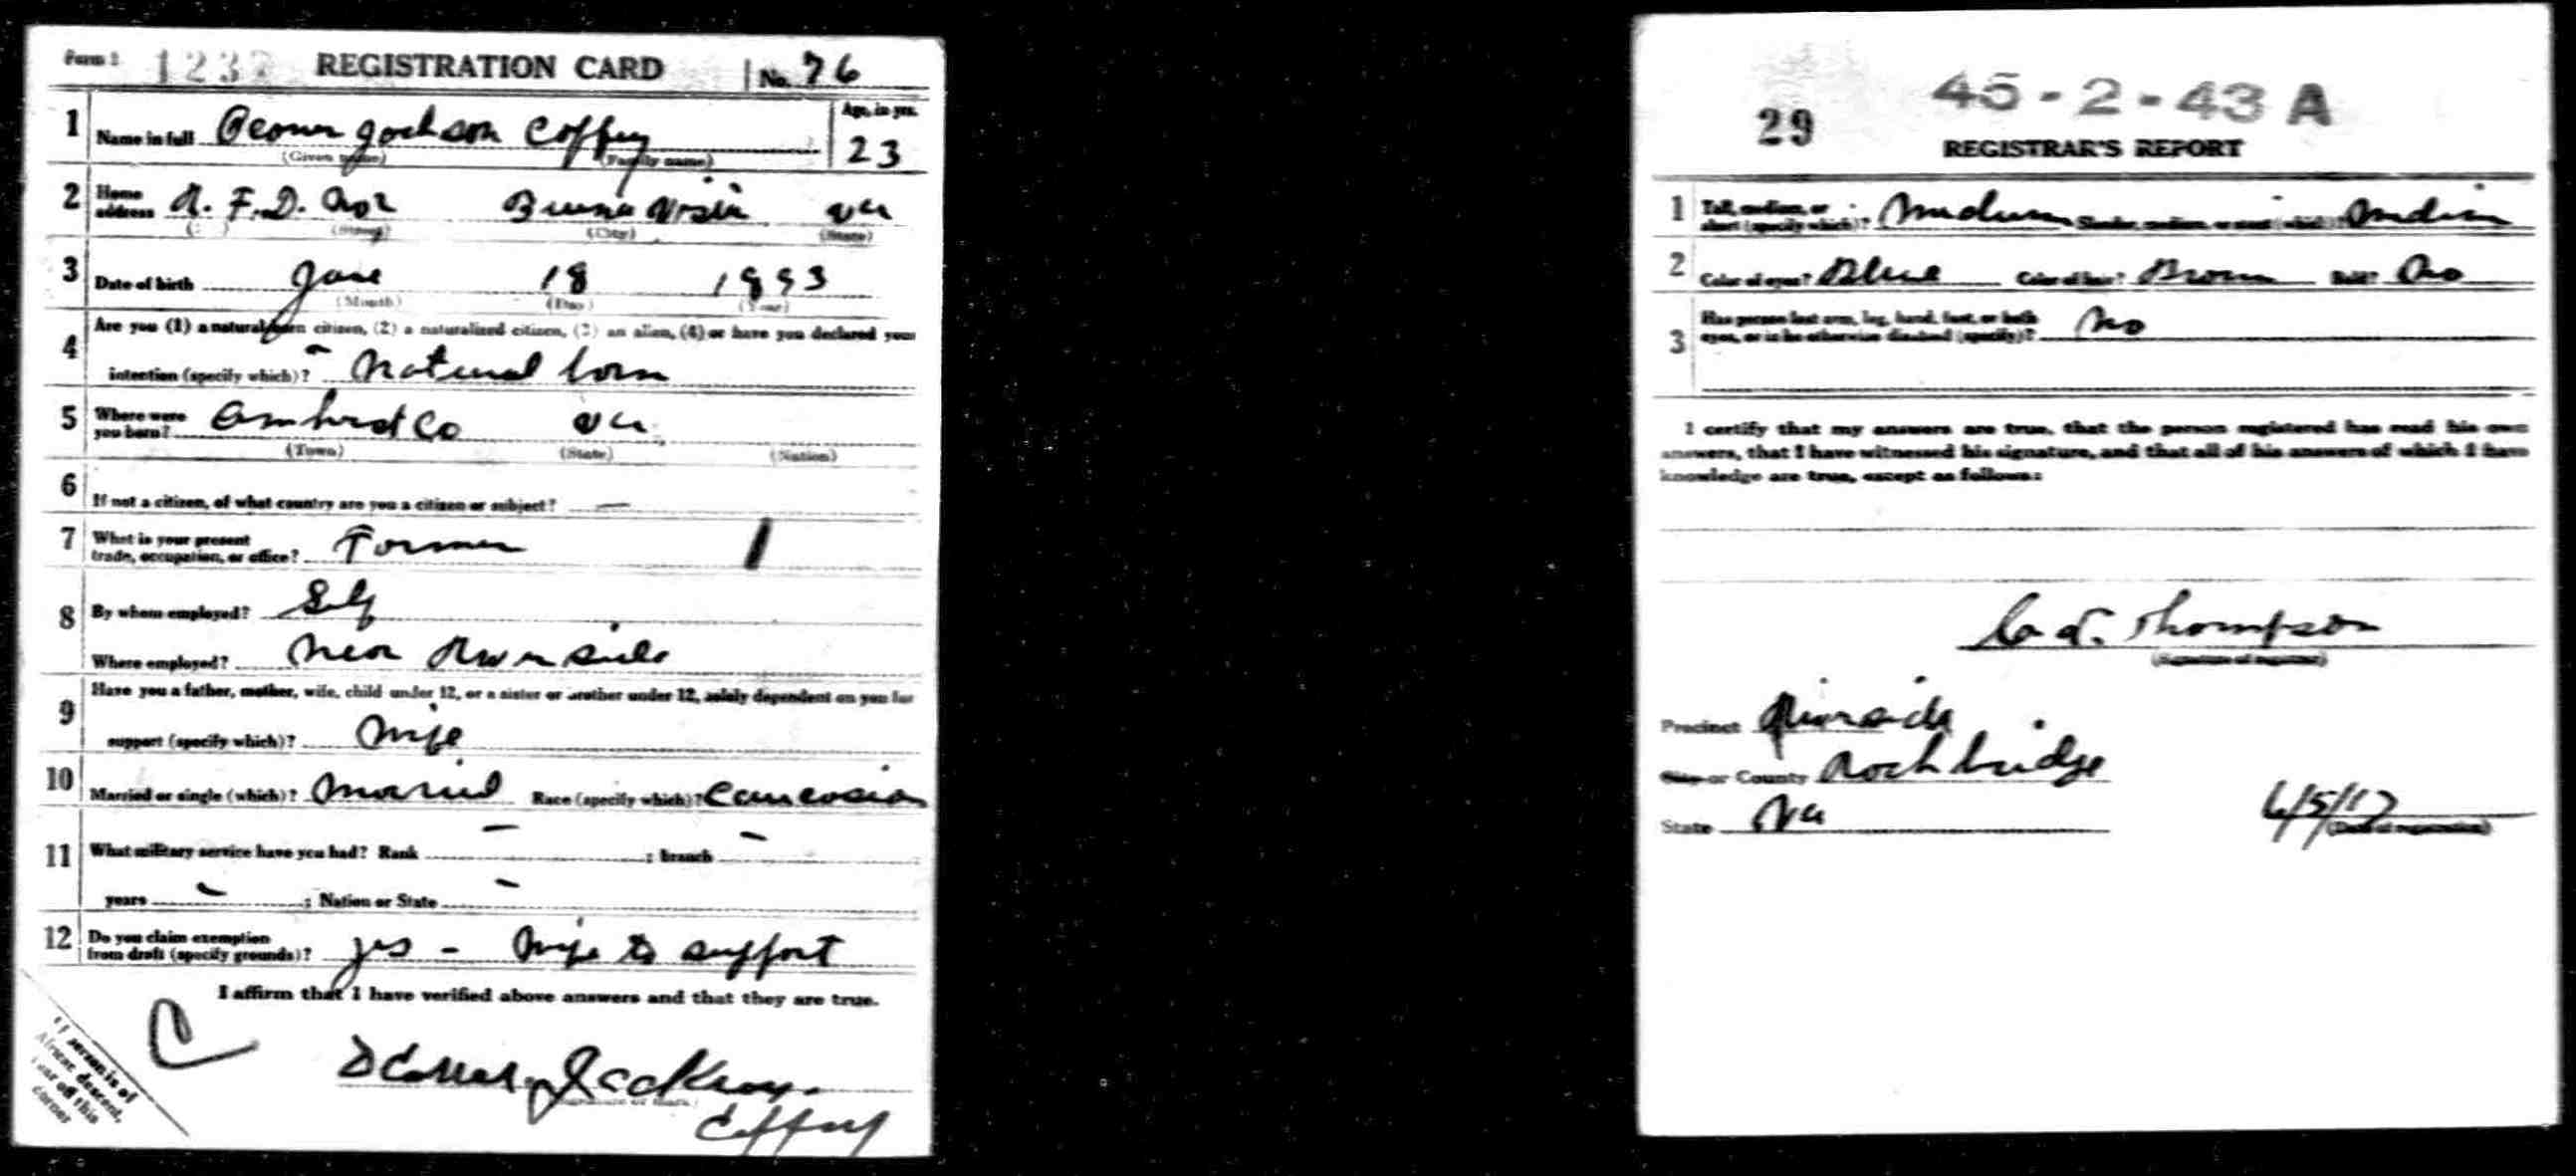 Form 1 1237 REGISTRATION CARD No. 76
1 Name in full Jackson Coffey Age, in yrs.
(Given name) (Family name) 23
2 Home address R. F. D. No 2 Buena Vista Va
(Street) (City) (State)
3 Date of birth June 18 1893
(Month) (Day) (Year)
Are you (1) a natural-born citizen, (2) a naturalized citizen, (3) an alien, (4) or have you declared your
4 intention (specify which)? Natural born
5 Where were you born? Amherst Co Va
(Town) (State) (Nation)
6 If not a citizen, of what country are you a citizen or subject? —
7 What is your present trade, occupation, or office? Farmer
8 By whom employed? Self
Where employed? Near Riverside
Have you a father, mother, wife, child under 12, or a sister or brother under 12, solely dependent on you for
9 support (specify which)? Wife
10 Married or single (which)? Married Race (specify which)? Caucasian
11 What military service have you had? Rank - ; branch -
years - ; Nation or State -
12 Do you claim exemption from draft (specify grounds)? yes - Wife to support
I affirm that I have verified above answers and that they are true.
C
Jackson
Coffey
(Signature or mark)
If person is of
African descent,
tear off this
corner
45-2-43 A
29
REGISTRAR'S REPORT
1 Tall, medium, or short (specify which)? Medium Slender, medium, or stout (which)? Medium
2 Color of eyes? Blue Color of hair? Brown Bald? No
3 Has person lost arm, leg, hand, foot, or both eyes, or is he otherwise disabled (specify)? No
I certify that my answers are true, that the person registered has read his own
answers, that I have witnessed his signature, and that all of his answers of which I have
knowledge are true, except as follows:
Thompson
(Signature of registrar)
Precinct Riverside
City or County Rockbridge
State Va 6/5/17
(Date of registration)